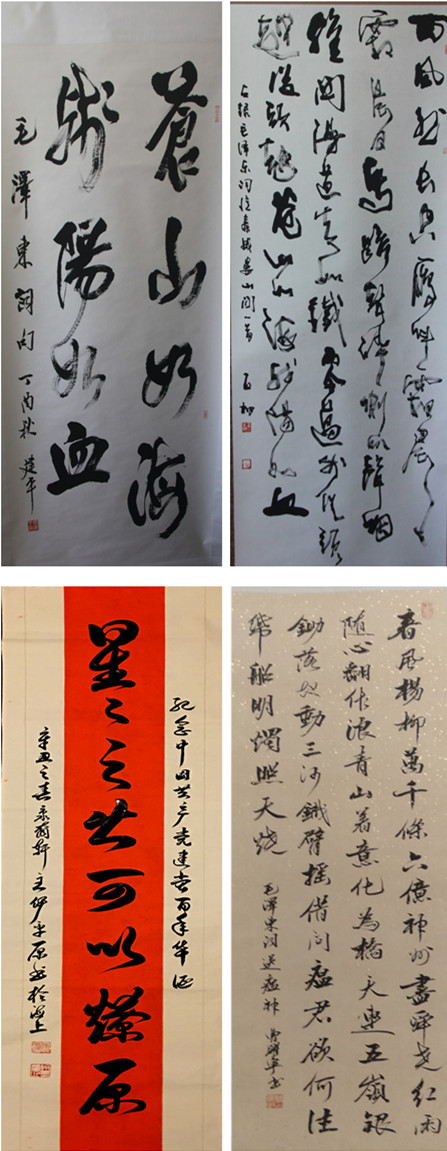 蒼山如海
殘陽如血
毛澤東詞句 丁酉秋
西風烈長空雁叫霜晨月
霜晨月馬蹄聲碎喇叭聲咽
雄關漫道真如鐵而今邁步從頭
越從頭越蒼山如海殘陽如血
上錄毛澤東詞憶秦娥婁山關一首
紀念中国共产党建党百年华诞
星々之火可以燎原
辛丑之春 主 平原書於海上
春風楊柳萬千條六億神州盡舜堯紅雨
随心翻作浪青山着意化為橋天連五嶺銀
鋤落地動三河鐵臂摇借問瘟君欲何往
紙船明燭照天燒 毛澤東詞送瘟神 書